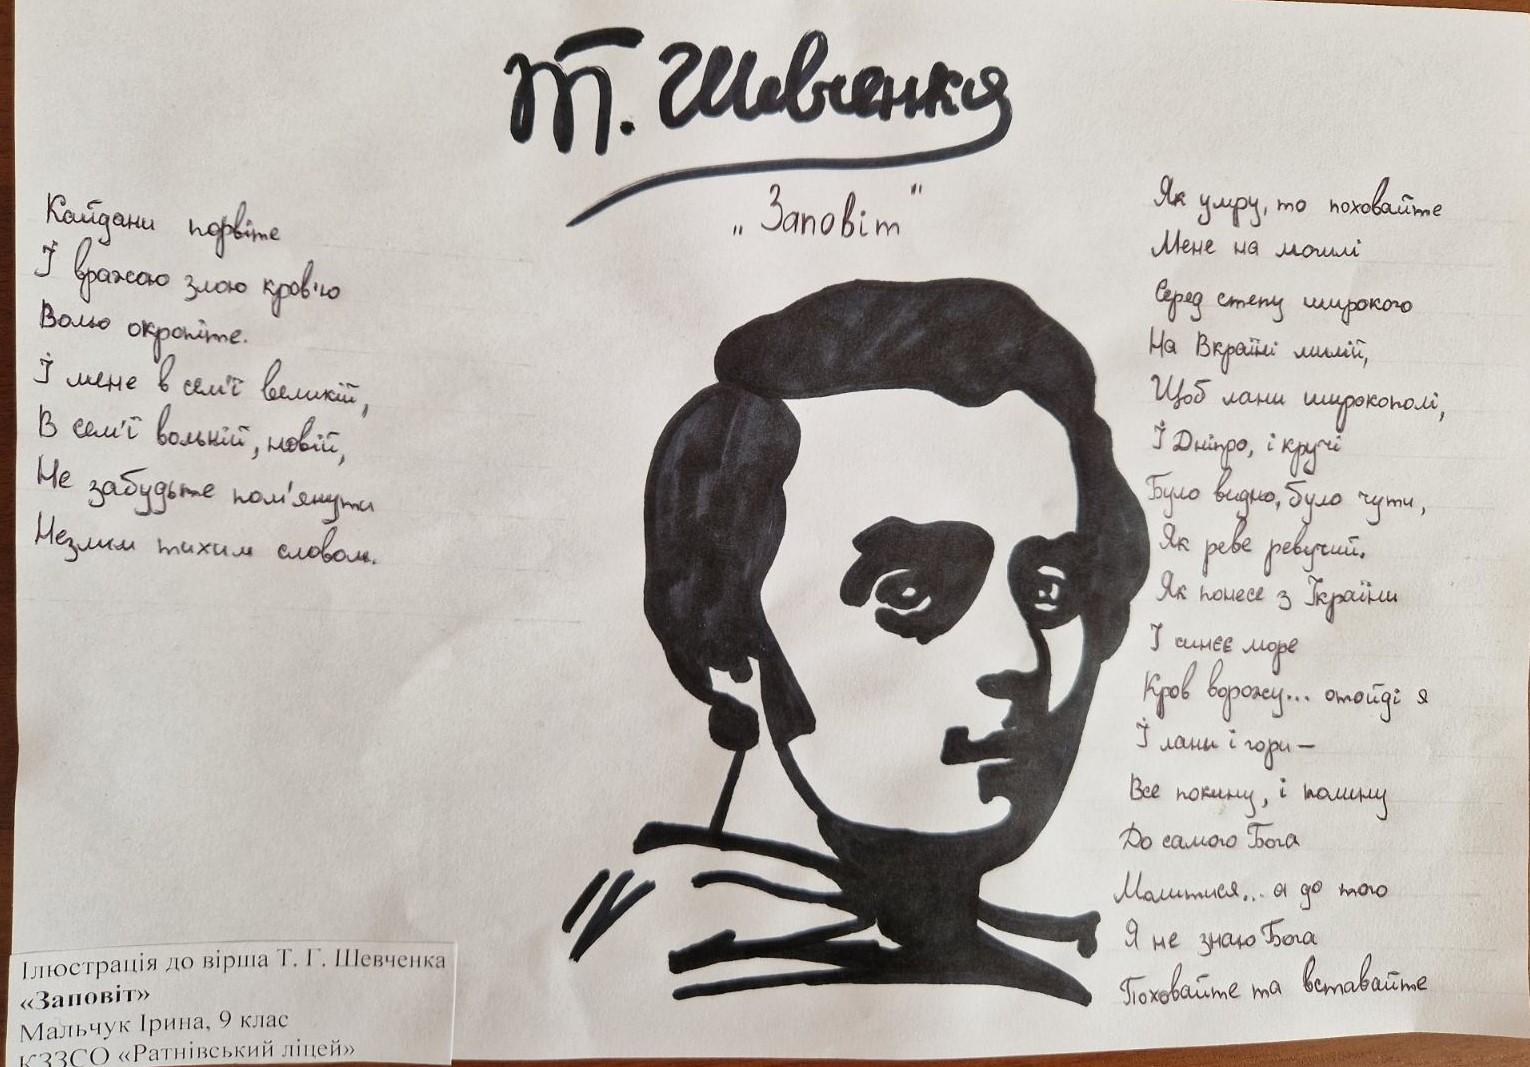 Т. Шевченка
„Заповіт"
Як умру, то поховайте
Мене на могилі
Серед степу широкого
На Вкраїні милій,
Щоб лани широкополі,
І Дніпро, і кручі
Було видно, було чути,
Як реве ревучий.
Як понесе з України
І синєє море
Кров ворожу... отойді я
І лани і гори –
Все покину, і полину
До самого Бога
Молитися... а до того
Я не знаю Бога
Поховайте та вставайте
Кайдани порвіте
І вражою злою кров'ю
Волю окропіте.
І мене в сем'ї великій,
В сем'ї вольній, новій,
Не забудьте пом'янути
Незлим тихим словом.
Ілюстрація до вірша Т. Г. Шевченка
«Заповіт»
Мальчук Ірина, 9 клас
КЗЗСО «Ратнівський ліцей»